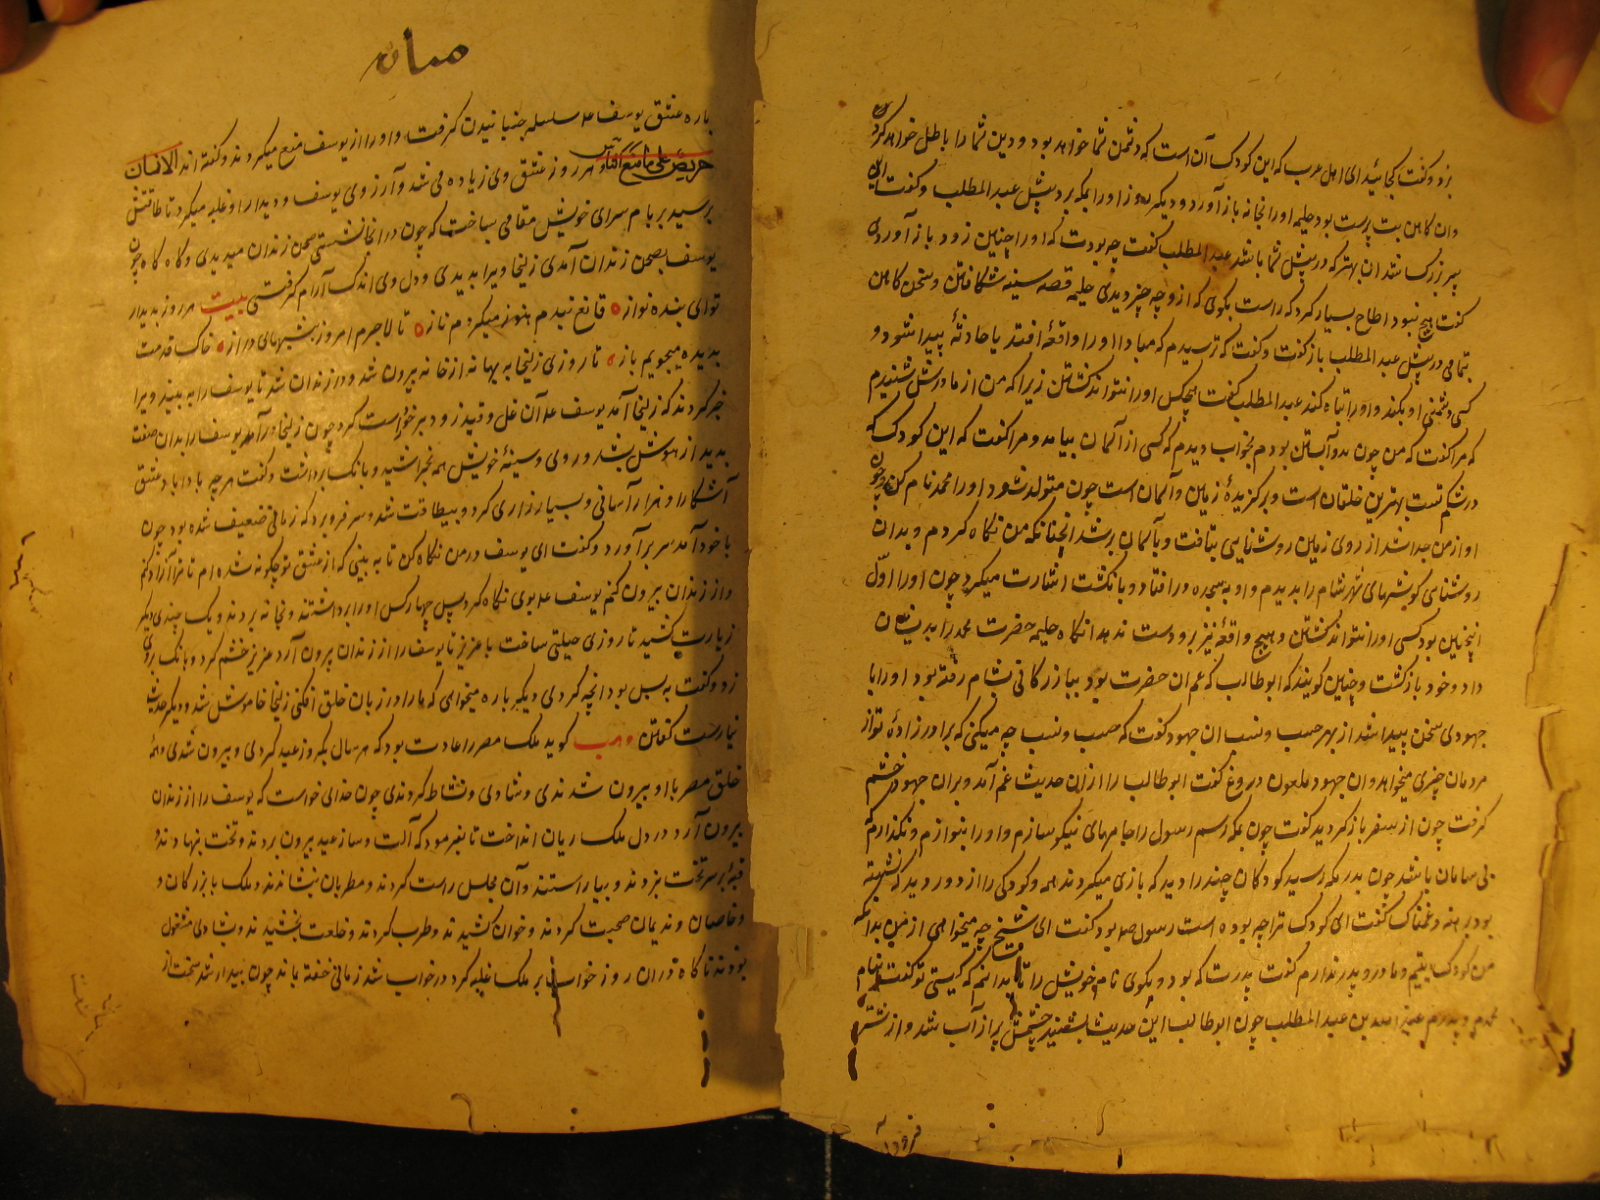 بزد و گفت کجائید ای اهل عرب که این کودک آن است که دشمن شما خواهد بود و دین شما را باطل خواهد کرد
وان کاهن بت پرست بود حلیمه اورا بخانه باز آورد و دیگر روز اورا بمکه برد پیش عبد المطلب و گفت این
پسر بزرک شد ان بهتر که در پیش شما باشد عبد المطلب گفت چه بودت که اورا چنین زود باز آوردی
گفت هیچ نبود الحاح بسیار کرد که راست بکوی که ازو چه چیز دیدی حلیمه قصه سینه شکافتن و سخن کاهن
بتمامی در پیش عبد المطلب باز گفت و گفت که ترسیدم که مبادا اورا واقعهٔ افتد یا حادثهٔ پیدا شود و
کسی دشمنی او بکند و اورا تباه کند عبد المطلب گفت هیچکس اورا نتواند کشتن زیرا که من از مادرش شنیدم
که مرا گفت که من چون بدو آبستن بودم بخواب دیدم که کسی از آسمان بیامد و مرا گفت که این کودک که
در شکم تست بهترین خلقان است و برکزیدهٔ زمین و آسمان است چون متولد شود اورا محمد نام کن و چون
او از من جدا شد از روی زمین روشنایی بتافت و بآسمان بر شد انچنانکه من نکاه کردم و بدان
روشنای کوشهای شهر شام را بدیدم و او بسجده در افتاد و بانکشت اشارت میکرد چون اورا اوّل
اینچنین بود کسی اورا نتواند کشتن و هیچ واقعهٔ نیز برو دست ندهد انکاه حلیمه حضرت محمد را بدیشان
داد و خود باز گشت و چنین کویند که ابو طالب که عم ان حضرت بود ببازرکانی بشام رفته بود اورا با
جهودی سخن پیدا شد از بهر حسب و نسب ان جهود گفت که حسب و نسب چه میکنی که برادر زادهٔ تو از
مردمان چیزی میخواهد وان جهود ملعون دروغ گفت ابو طالب را ازان حدیث غم آمد و بران جهود خشم
کرفت چون از سفر باز کردید گفت چون بمکه رسم رسول را جامهای نیکو سازم و اورا بنوازم و نکذارم که
بی سامان باشد چون بدر مکه رسید کودکان چند را دید که بازی میکردند همه و کودکی را از دور دید که نشسته
بود برهنه و غمناک گفت ای کودک ترا چه بوده است رسول صلعم بود گفت ای شیخ چه میخواهی از من بدانکه
من کودک یتیم و مادر و پدر ندارم گفت پدرت که بود و بکوی نام خویش را تا بدانم که کیستی تو گفت نام
محمدم و پدرم عبد الله بن عبد المطلب چون ابو طالب این حدیث بشنید چشمش پر از آب شد و از شتر
فرود آمد
باره عشق یوسف علم سلسله جنبانیدن کرفت و اورا از یوسف منع میکردند و گفته اند الانسان
حریص علی ما منع هر روز عشق وی زیاده می شد و آرزوی یوسف و دیدار او غلبه میکرد تا طاقتش
برسید بر بام سرای خویش مقامی ساخت که چون در انجا نشستی صحن زندان میدیدی و کاه کاه چون
یوسف بصحن زندان آمدی زلیخا ویرا بدیدی و دل وی اندک آرام کرفتی بیت هر روز بدیدار
توای بنده نواز قانع نیدم هنوز میکردم ناز تا لاجرم امروز بشبهای دراز خاک قدمت
بدیده میجویم باز تا روزی زلیخا به بهانه از خانه بیرون شد و در زندان شد تا یوسف را به بیند ویرا
خبر کردند که زلیخا آمد یوسف علم آن غل و قید زود بر خود راست کرد چون زلیخا درآمد یوسف را بدان صفت
بدید از هوش بشد و روی و سینهٔ خویش همه بخراشید و بانک برداشت و گفت هرچه بادا باد عشق
آشکارا و بسیار زاری کرد و بیطاقت شد و سر فرو برد که زمانی ضعیف شده بود چون
با خود آمد سر برآورد و گفت ای یوسف در من نکاه کن تا به بینی که از عشق تو چکونه شده ام تا ترا آزاد کنم
و از زندان بیرون کنم یوسف علم بوی نکاه کرد پس چهار کس اورا برداشتند و بخانه بردند و یک چندی دیکر
زیارت کشید تا روزی حیلتی ساخت با عزیز تا یوسف را از زندان برون آرد عزیز خشم کرد و بانک بروی
زد و گفت به بس بود انچه کردی دیکر باره میخواهی که مارا در زبان خلق افکنی زلیخا خاموش شد و دیکر حدیث
نیارست گفتن وهب کوید ملک مصر را عادت بود که هر سال یکروز عید کردی و بیرون شدی و همهٔ
خلق مصر با او بیرون شدندی و شادی و نشاط کردندی چون خدای خواست که یوسف را از زندان
بیرون آرد در دل ملک ریان انداخت تا بفرمود که آلت و ساز عید بیرون بردند و تخت بنهادند و
قبهٔ بر سر تخت بزدند و بیاراستند وآن مجلس راست کردند و مطربان بنشاندند و ملک با بزرکان و
و خاصان و ندیمان صحبت کردند و خوان کشیدند و طرب کردند و خلعت بخشیدند و بشادی مشغول
بودند تا کاه دران روز خواب بر ملک غلبه کرد در خواب شد زمانی خفته ماند چون بیدار شد سخت از